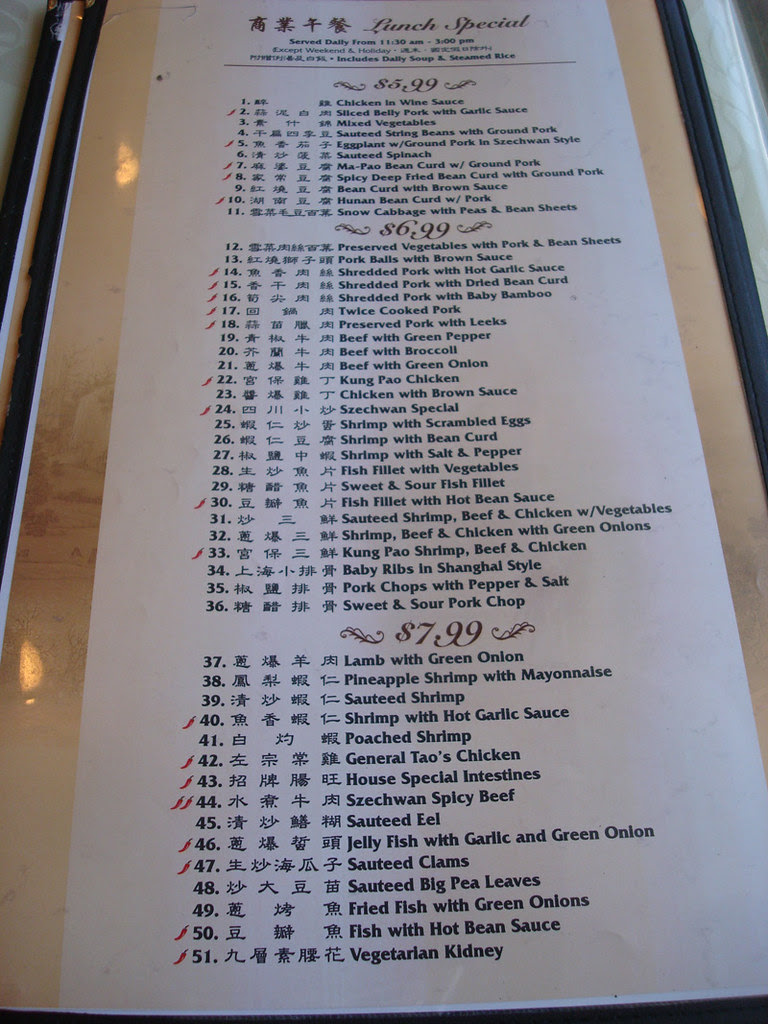 商業午餐 Lunch Special
Served Daily From 11:30 am - 3:00 pm
(Except Weekend & Holiday • 週末 · 國定假日除外)
附贈例湯及白飯 • Includes Daily Soup & Steamed Rice
$5.99
1. 醉雞 Chicken in Wine Sauce
2. 蒜泥白肉 Sliced Belly Pork with Garlic Sauce
3. 素什錦 Mixed Vegetables
4. 干扁四季豆 Sauteed String Beans with Ground Pork
5. 魚香茄子 Eggplant w/Ground Pork in Szechwan Style
6. 清炒菠菜 Sauteed Spinach
7. 麻婆豆腐 Ma-Pao Bean Curd w/ Ground Pork
8. 家常豆腐 Spicy Deep Fried Bean Curd with Ground Pork
9. 紅燒豆腐 Bean Curd with Brown Sauce
10. 湖南豆腐 Hunan Bean Curd w/ Pork
11. 雪菜毛豆百葉 Snow Cabbage with Peas & Bean Sheets
$6.99
12. 雪菜肉絲百葉 Preserved Vegetables with Pork & Bean Sheets
13. 紅燒獅子頭 Pork Balls with Brown Sauce
14. 魚香肉絲 Shredded Pork with Hot Garlic Sauce
15. 香干肉絲 Shredded Pork with Dried Bean Curd
16. 筍尖肉絲 Shredded Pork with Baby Bamboo
17. 回鍋肉 Twice Cooked Pork
18. 蒜苗臘肉 Preserved Pork with Leeks
19. 青椒牛肉 Beef with Green Pepper
20. 芥蘭牛肉 Beef with Broccoli
21. 蔥爆牛肉 Beef with Green Onion
22. 宮保雞丁 Kung Pao Chicken
23. 醬爆雞丁 Chicken with Brown Sauce
24. 四川小炒 Szechwan Special
25. 蝦仁炒蛋 Shrimp with Scrambled Eggs
26. 蝦仁豆腐 Shrimp with Bean Curd
27. 椒鹽中蝦 Shrimp with Salt & Pepper
28. 生炒魚片 Fish Fillet with Vegetables
29. 糖醋魚片 Sweet & Sour Fish Fillet
30. 豆瓣魚片 Fish Fillet with Hot Bean Sauce
31. 炒三鮮 Sauteed Shrimp, Beef & Chicken w/Vegetables
32. 蔥爆三鮮 Shrimp, Beef & Chicken with Green Onions
33. 宮保三鮮 Kung Pao Shrimp, Beef & Chicken
34. 上海小排骨 Baby Ribs in Shanghai Style
35. 椒鹽排骨 Pork Chops with Pepper & Salt
36. 糖醋排骨 Sweet & Sour Pork Chop
$7.99
37. 蔥爆羊肉 Lamb with Green Onion
38. 鳳梨蝦仁 Pineapple Shrimp with Mayonnaise
39. 清炒蝦仁 Sauteed Shrimp
40. 魚香蝦仁 Shrimp with Hot Garlic Sauce
41. 白灼蝦 Poached Shrimp
42. 左宗棠雞 General Tao's Chicken
43. 招牌腸旺 House Special Intestines
44. 水煮牛肉 Szechwan Spicy Beef
45. 清炒鱔糊 Sauteed Eel
46. 蔥爆蜇頭 Jelly Fish with Garlic and Green Onion
47. 生炒海瓜子 Sauteed Clams
48. 炒大豆苗 Sauteed Big Pea Leaves
49. 蔥烤魚 Fried Fish with Green Onions
50. 豆瓣魚 Fish with Hot Bean Sauce
51. 九層素腰花 Vegetarian Kidney